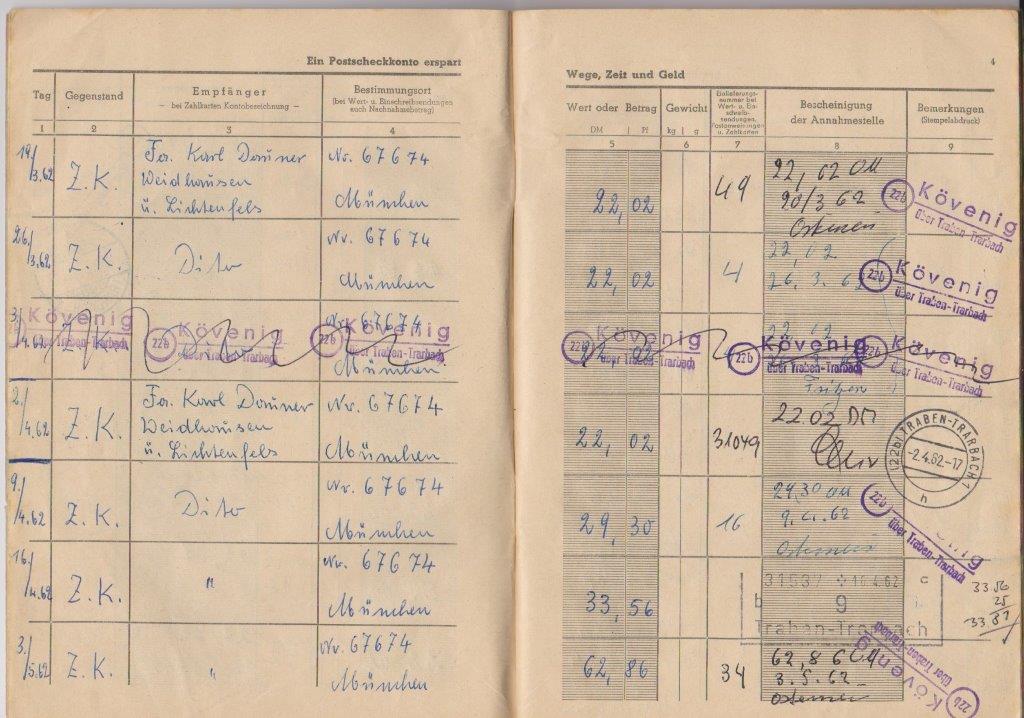 Ein Postscheckkonto erspart
Tag Gegenstand Empfänger Bestimmungsort
— bei Zahlkarten Kontobezeichnung — (bei Wert- u. Einschreibsendungen
auch Nachnahmebetrag)
1 2 3 4
19./ Z.K. Fa. Karl Dauner Nr. 67674
3.62 Weidhausen
ü. Lichtenfels München
26./ Z.K. Dito Nr. 67674
3.62 München
3./ Z.K. Nr. 67674
4.62 München
Kövenig
über Traben-Trarbach
22b Kövenig
über Traben-Trarbach
22b Kövenig
über Traben-Trarbach
2./ Z.K. Fa. Karl Dauner Nr. 67674
4.62 Weidhausen
ü. Lichtenfels München
9./ Z.K. Dito Nr. 67674
4.62 München
16./ Z.K. " Nr. 67674
4.62 München
3./ Z.K. " Nr. 67674
5.62 München
4
Wege, Zeit und Geld
Wert oder Betrag Gewicht Einlieferungs-
nummer bei
Wert- u. Ein-
schreib-
sendungen,
Postanweisungen
u. Zahlkarten
Bescheinigung
der Annahmestelle
Bemerkungen
(Stempelabdruck)
DM Pf kg g
5 6 7 8 9
22,02 49 22,02 DM
20/3 62
22b Kövenig
über Traben-Trarbach
22,02 4 22,02
26.3.62
22b Kövenig
über Traben-Trarbach
22b Kövenig
über Traben-Trarbach
22b Kövenig
über Traben-Trarbach
22b Kövenig
über Traben-Trarbach
22,02 31049 22.02 DM
(22b) TRABEN-TRARBACH 1
-2.4.62.-17
h
29,30 16 29,30 DM
9.4.62
22b
über Traben-Trarbach
33,56 31537 16.4.62
b 9
Traben-Trarbach
33.56
25
33 81
62,86 34 62,86 DM
3.5.62
22b Kövenig
über Traben-Trarbach